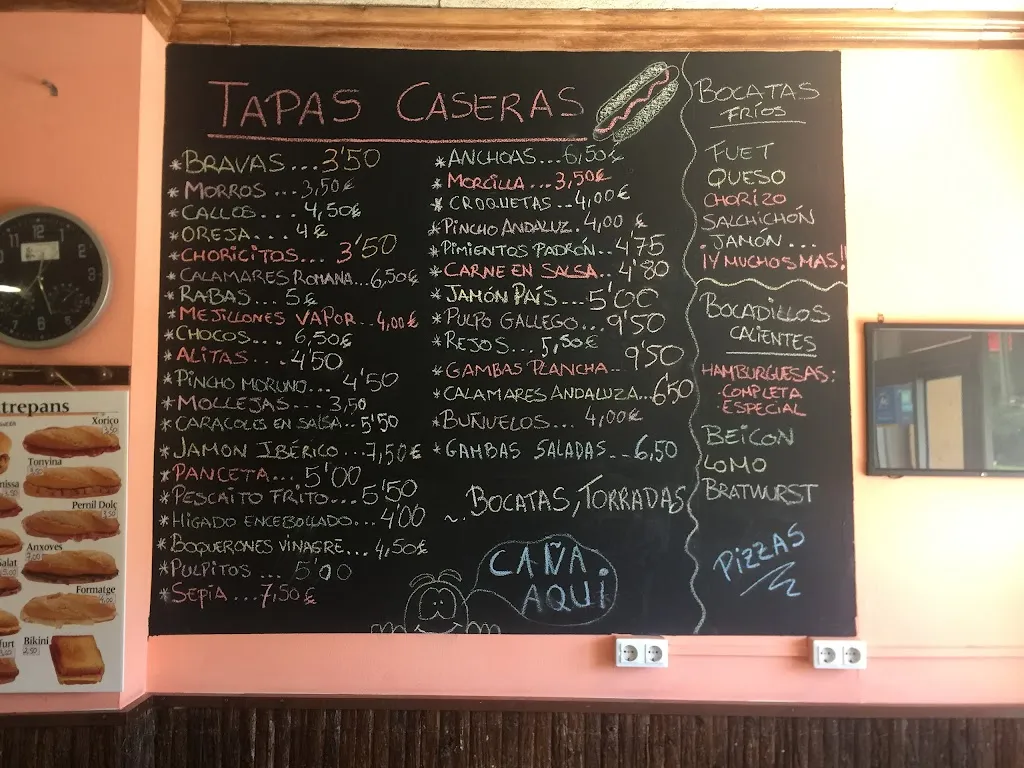 TAPAS CASERAS
*BRAVAS...3'50
*MORROS...3,50€
*CALLOS...4,50€
*OREJA...4€
*CHORICITOS...3'50
*CALAMARES ROMANA...6,50€
*RABAS...5€
*MEJILLONES VAPOR..4,00€
*CHOCOS...6,50€
*ALITAS...4'50
*PINCHO MORUNO...4'50
*MOLLEJAS...3,50
*CARACOLES EN SALSA..5'50
*JAMON IBÉRICO...7,50€
*PANCETA...5'00
*PESCAITO FRITO...5'50
*HIGADO ENCEBOLLADO...4'00
*BOQUERONES VINAGRE...4,50€
*PULPITOS...5'00
*SEPIA...7,50€
*ANCHOAS...6,50€
*MORCILLA...3,50€
*CROQUETAS..4,00€
*PINCHO ANDALUZ.4,00 €
*PIMIENTOS PADRÓN..4'75
*CARNE EN SALSA..4'80
*JAMÓN PAÍS...5'00
*PULPO GALLEGO...9'50
*REJOS...5,50€
*GAMBAS PLANCHA..9'50
*CALAMARES ANDALUZA...6'50
*BUÑUELOS...4,00€
*GAMBAS SALADAS...6,50
BOCATAS, TORRADAS
CAÑA
AQUÍ
BOCATAS
FRÍOS
FUET
QUESO
CHORIZO
SALCHICHÓN
JAMÓN...
¡Y MUCHOS MAS!!
BOCADILLOS
CALIENTES
HAMBURGUESAS:
·COMPLETA
·ESPECIAL
BEICON
LOMO
BRATWURST
PIZZAS
trepans
Xoriço
Tonyina
Pernil Dolç
Anxoves
Formatge
Bikini
12
11
1
10
2
9
3
8
4
7
6
5